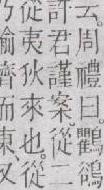 云。周禮曰。鸜鵒
許君謹案。從二
從夷狄來也。從
乃踰濟而東。又